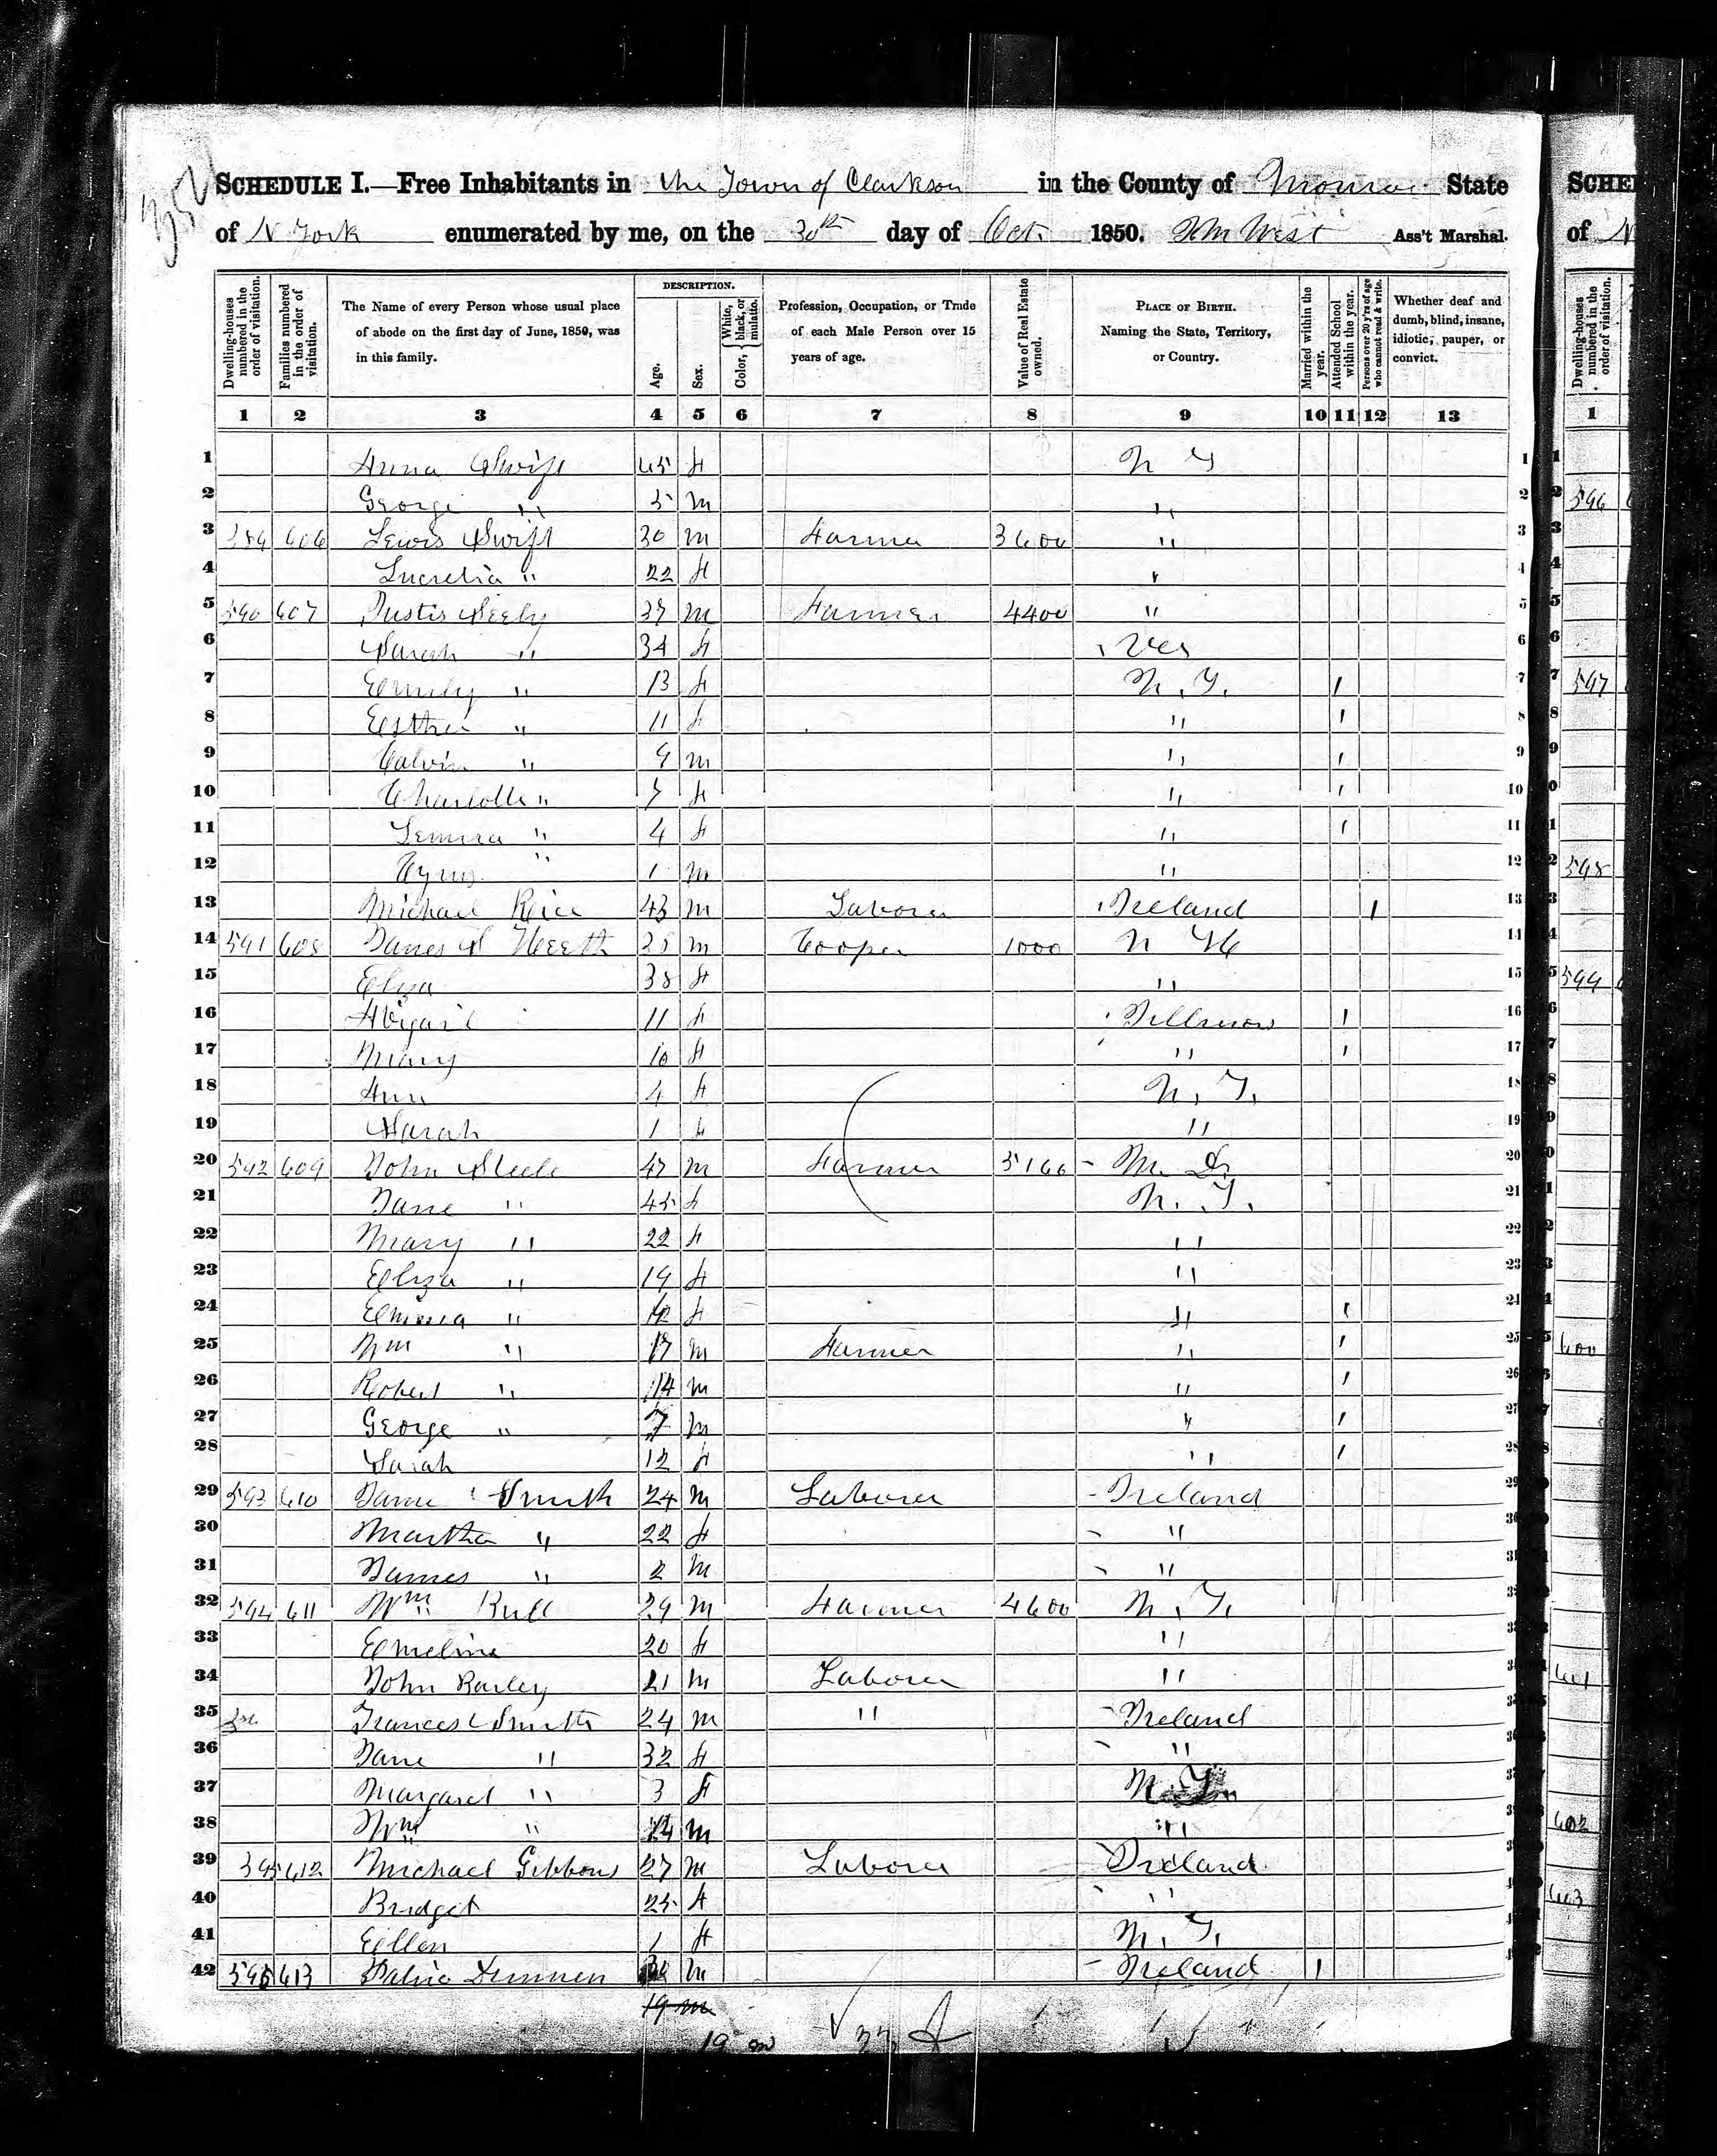 352
SCHEDULE I.—Free Inhabitants in the Town of Clarkson in the County of Monroe State
of N York enumerated by me, on the 30th day of Oct. 1850. Wm West Ass't Marshal.
Dwelling-houses numbered in the order of visitation. Families numbered in the order of visitation. The Name of every Person whose usual place of abode on the first day of June, 1850, was in this family. DESCRIPTION. Age. Sex. Color, { White, black, or mulatto. Profession, Occupation, or Trade of each Male Person over 15 years of age. Value of Real Estate owned. PLACE OF BIRTH. Naming the State, Territory, or Country. Married within the year. Attended School within the year. Persons over 20 y'rs of age who cannot read & write. Whether deaf and dumb, blind, insane, idiotic, pauper, or convict.
1 2 3 4 5 6 7 8 9 10 11 12 13
1 Anna Swift 45 f N Y 1
2 George " 5 m " 2
3 589 606 Lewis Swift 30 m Farmer 3600 " 3
4 Lucretia " 22 f " 4
5 590 607 Justis Seely 37 m Farmer 4400 " 5
6 Sarah " 34 f Ver 6
7 Emily " 13 f N.Y. 1 7
8 Esther " 11 f " 1 8
9 Calvin " 9 m " 1 9
10 Charlotte " 7 f " 1 10
11 Lemira " 4 f " 1 11
12 Cyrus " 1 m " 12
13 Michael Rice 43 m Laborer Ireland 1 13
14 591 608 James S 38 m Cooper 1000 N H 14
15 Eliza 38 f " 15
16 Abigail 11 f Illinois 1 16
17 Mary 10 f " 1 17
18 Ann 4 f N.Y. 18
19 Sarah 1 f " 19
20 592 609 John Steele 47 m Farmer 5100 M. D. 20
21 Jane " 45 f N.Y. 21
22 Mary " 22 f " 22
23 Eliza " 19 f " 23
24 Emma " 12 f " 1 24
25 Wm " 17 m Farmer " 1 25
26 Robert " 14 m " 1 26
27 George " 7 m " 1 27
28 Sarah 12 f " 1 28
29 593 610 Smith 24 m Laborer Ireland 29
30 Martha " 22 f "
31 James " 2 m "
32 594 611 Wm Bull 29 m Farmer 4600 N.Y.
33 Emeline 20 f "
34 John Barley 21 m Laborer "
35 Frances Smith 24 m " Ireland
36 Jane " 32 f "
37 Margaret " 3 f N.Y.
38 Wm " m "
39 595 612 Michael Gibbons 27 m Laborer Ireland
40 Bridget 25 f "
41 Ellen 1 f N.Y.
42 595 613 30 m Ireland 1
19 m
19 m
SCHE
of N
Dwelling-houses numbered in the order of visitation.
1
596
597
598
599
600
601
602
603